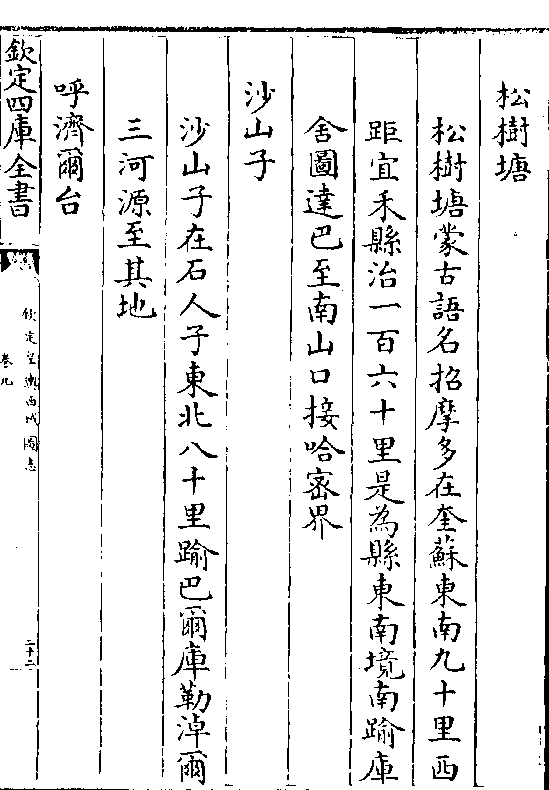 松樹塘
松樹塘蒙古語名招摩多在奎蘇東南九十里西
距宜禾縣治一百六十里是為縣東南境南踰庫
舍圖達巴至南山口接哈密界
沙山子
沙山子在石人子東北八十里踰巴爾庫勒淖爾
三河源至其地
呼濟爾台
欽定四庫全書
欽定皇輿西域圖志
卷九
二十二